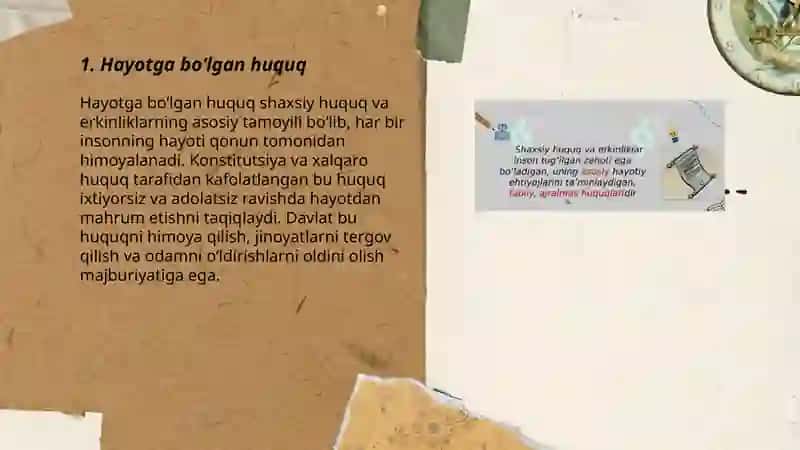 1. Hayotga bo‘lgan huquq
Hayotga bo‘lgan huquq shaxsiy huquq va
erkinliklarning asosiy tamoyili bo‘lib, har bir
insonning hayoti qonun tomonidan
himoyalanadi. Konstitutsiya va xalqaro
huquq tarafidan kafolatlangan bu huquq
ixtiyorsiz va adolatsiz ravishda hayotdan
mahrum etishni taqiqlaydi. Davlat bu
huquqni himoya qilish, jinoyatlarni tergov
qilish va odamni o‘ldirishlarni oldini olish
majburiyatiga ega.
Shaxsiy huquq va erkinliklar
inson tug‘ilgan zahoti ega
bo‘ladigan, uning asosiy hayotiy
ehtiyojlarini ta’minlaydigan,
tabiiy, ajralmas huquqlaridir